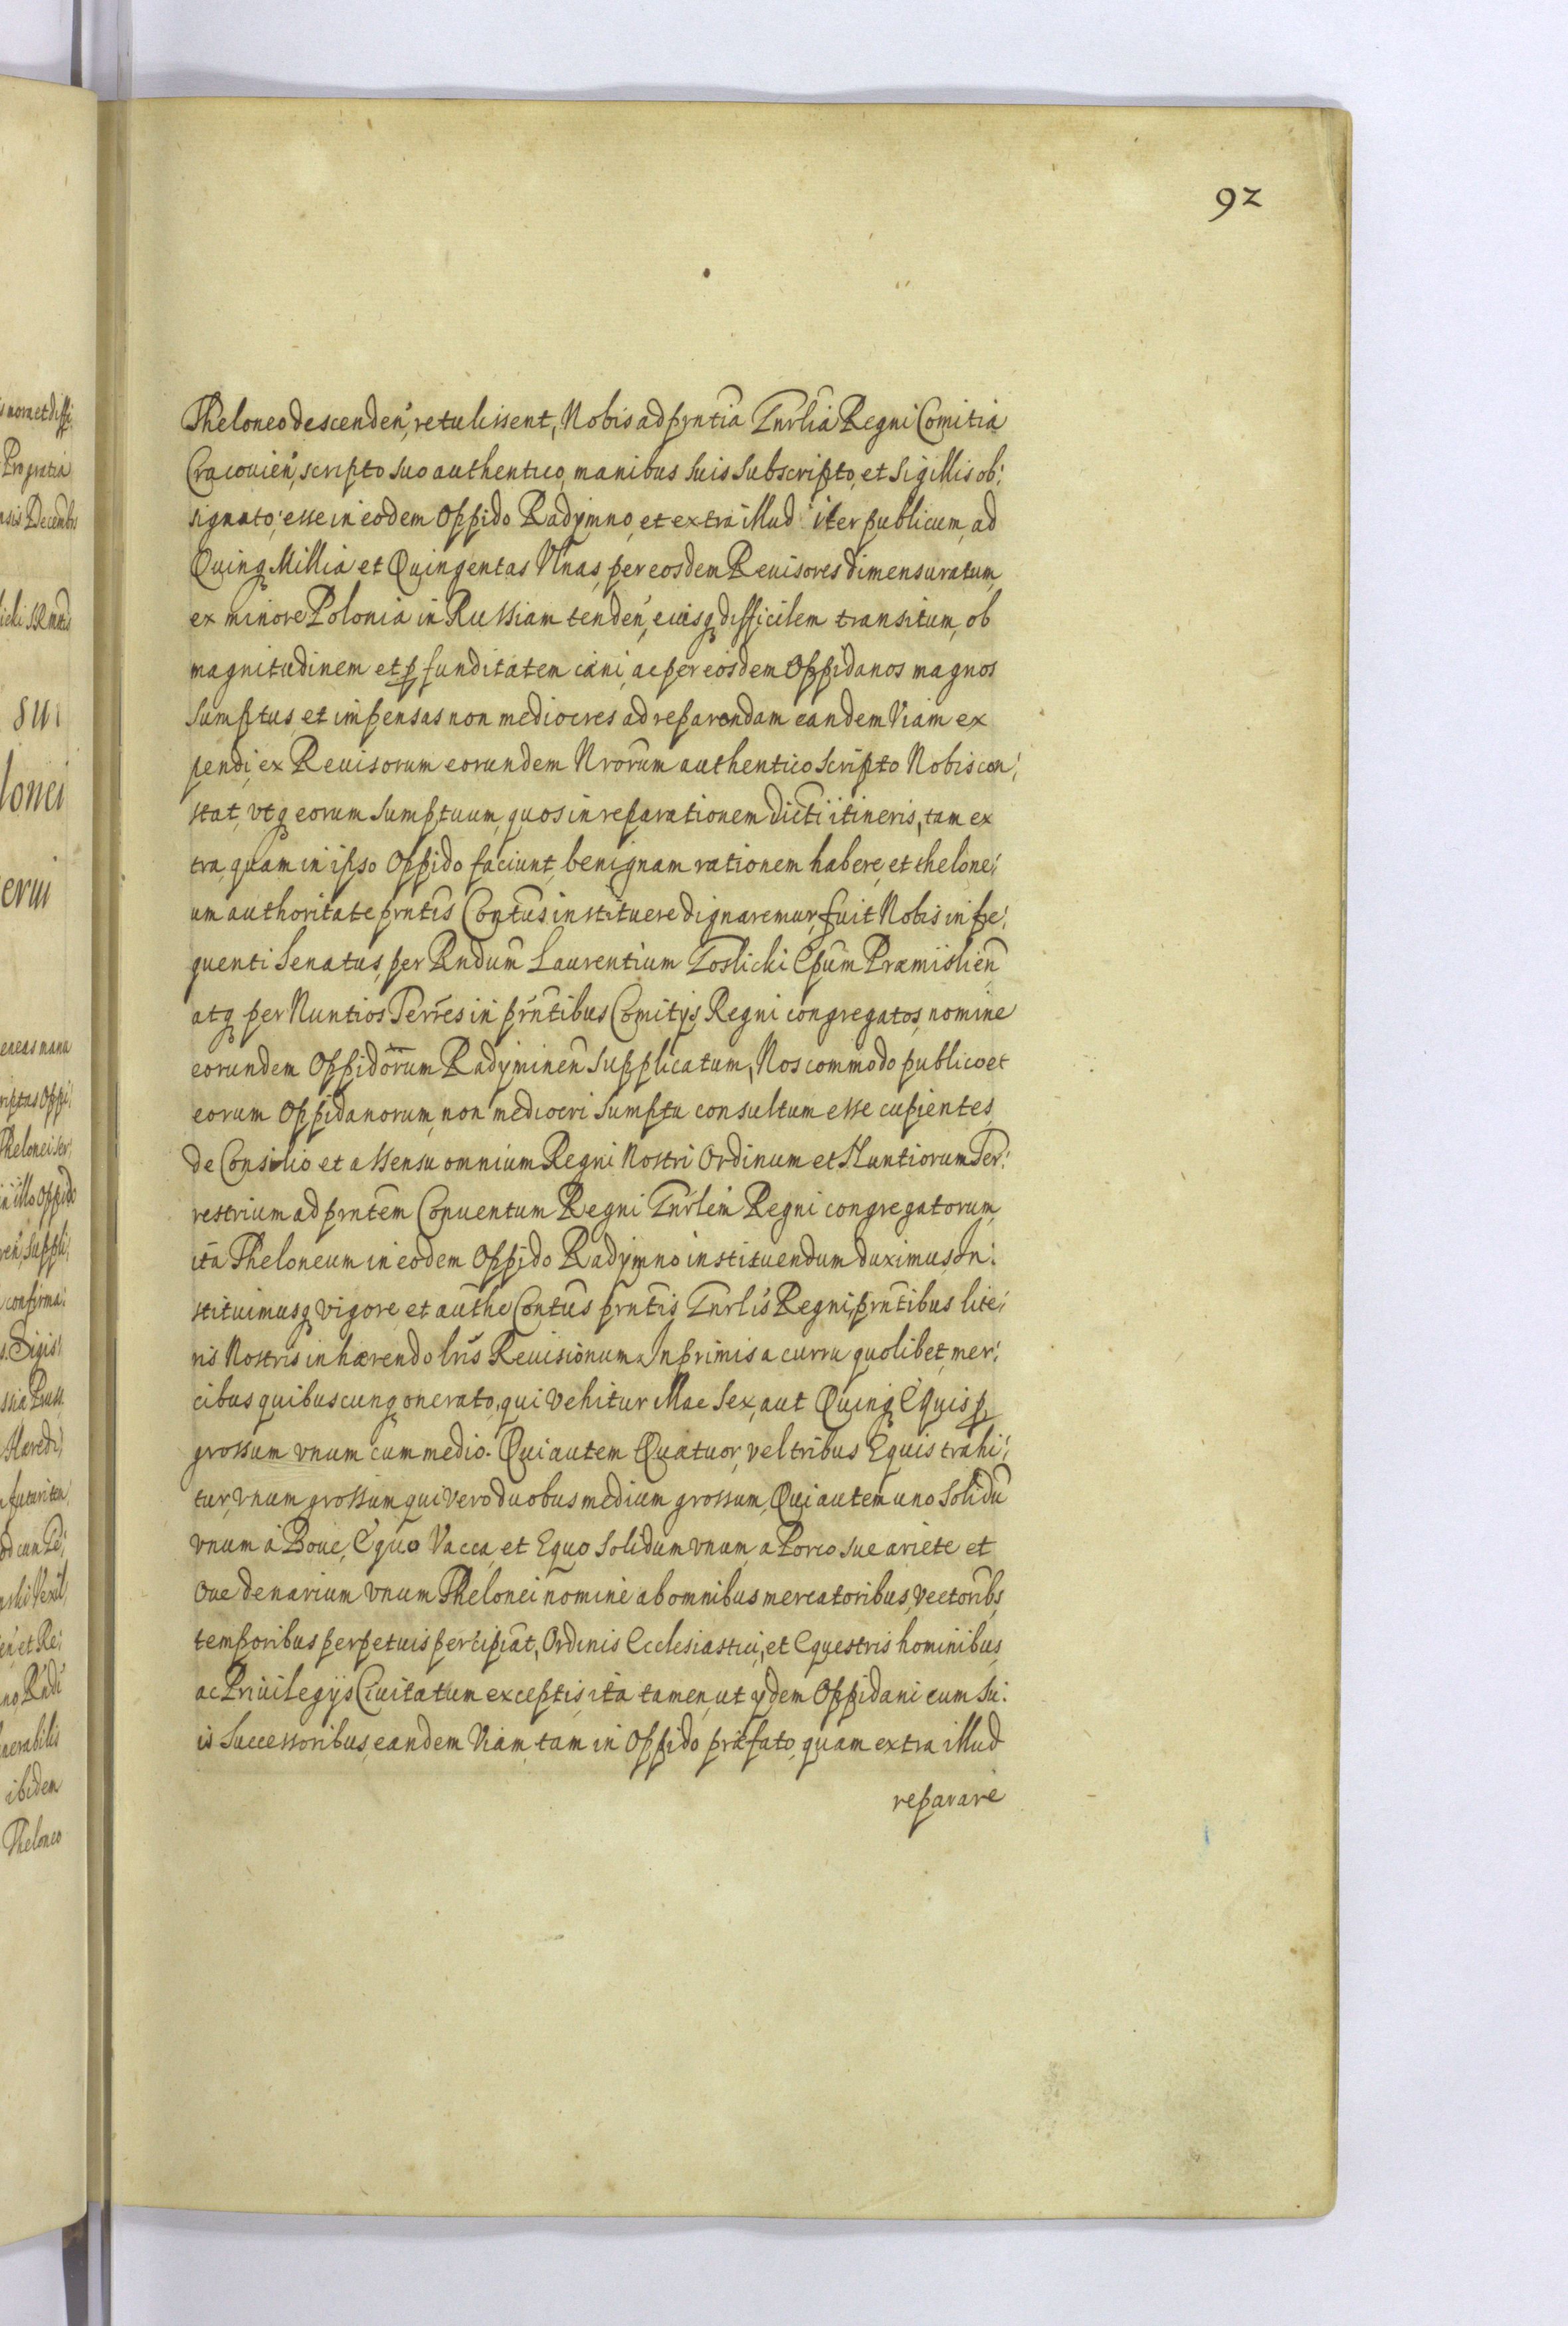 92
Theloneo descenden̄, retulissent, Nobis ad prn̄tia Gnr̄lia Regni Comitia
Cracouien̄, scripto suo authentico, manibus suis subscripto, et Sigillis ob:
signato, esse in eodem Oppido Radymno, et extra illud iter publicum, ad
Quinq Millia et Quingentas Vlnas, per eosdem Reuisores dimensuratum,
ex minore Polonia in Russiam tenden̄, eiusq difficilem transitum, ob
magnitudinem et p funditatem cæni, ac per eosdem Oppidanos magnos
sumptus, et impensas non mediocres ad reparandam eandem Viam ex
pendi, ex Reuisorum eorundem Nrorum authentico scripto Nobis con:
stat, vtq eorum sumptuum, quos in reparationem dicti itineris, tam ex
tra, quam in ipso Oppido faciunt, benignam rationem habere, et thelone:
um authoritate prn̄tis Contūs instituere dignaremur, fuit Nobis in fre:
quenti Senatus, per Rndum Laurentium Goslicki Epum Præmislien̄
atq per Nuntios Terrēs in prn̄tibus Comitijs Regni congregatos, nomine
eorundem Oppidorum Radyminen̄ supplicatum, Nos commodo publico et
eorum Oppidanorum, non mediocri sumptu consultum esse cupientes,
de Consilio et assensu omnium Regni Nostri Ordinum et Nuntiorum Ter:
restrium ad prn̄tem Conuentum Regni Gnr̄lem Regni congregatorum,
ita Theloneum in eodem Oppido Radymno instituendum duximus, In:
stituimusq vigore, et authe Contūs prn̄tis Gnr̄lis Regni, prn̄tibus lite:
ris Nostris inhærendo lrīs Reuisionum. Inprimis a curru quolibet, mer:
cibus quibuscunq onerato, qui vehitur Mae Sex, aut Quinq Equis p
grossum vnum cum medio. Qui autem Quatuor, vel tribus Equis trahi:
tur, vnum grossum, qui vero duobus medium grossum, Qui autem uno solidū
vnum à Boue, Equo Vacca, et Equo solidum vnum, a Porco sue ariete et
Oue denarium vnum Thelonei nomine ab omnibus mercatoribus, vectoribs,
temporibus perpetuis percipiāt, Ordinis Ecclesiastici, et Equestris hominibus,
ac Priuilegijs Ciuitatum exceptis, ita tamen, ut ydem Oppidani cum su:
is Successoribus, eandem Viam, tam in Oppido præfato, quam extra illud
reparare